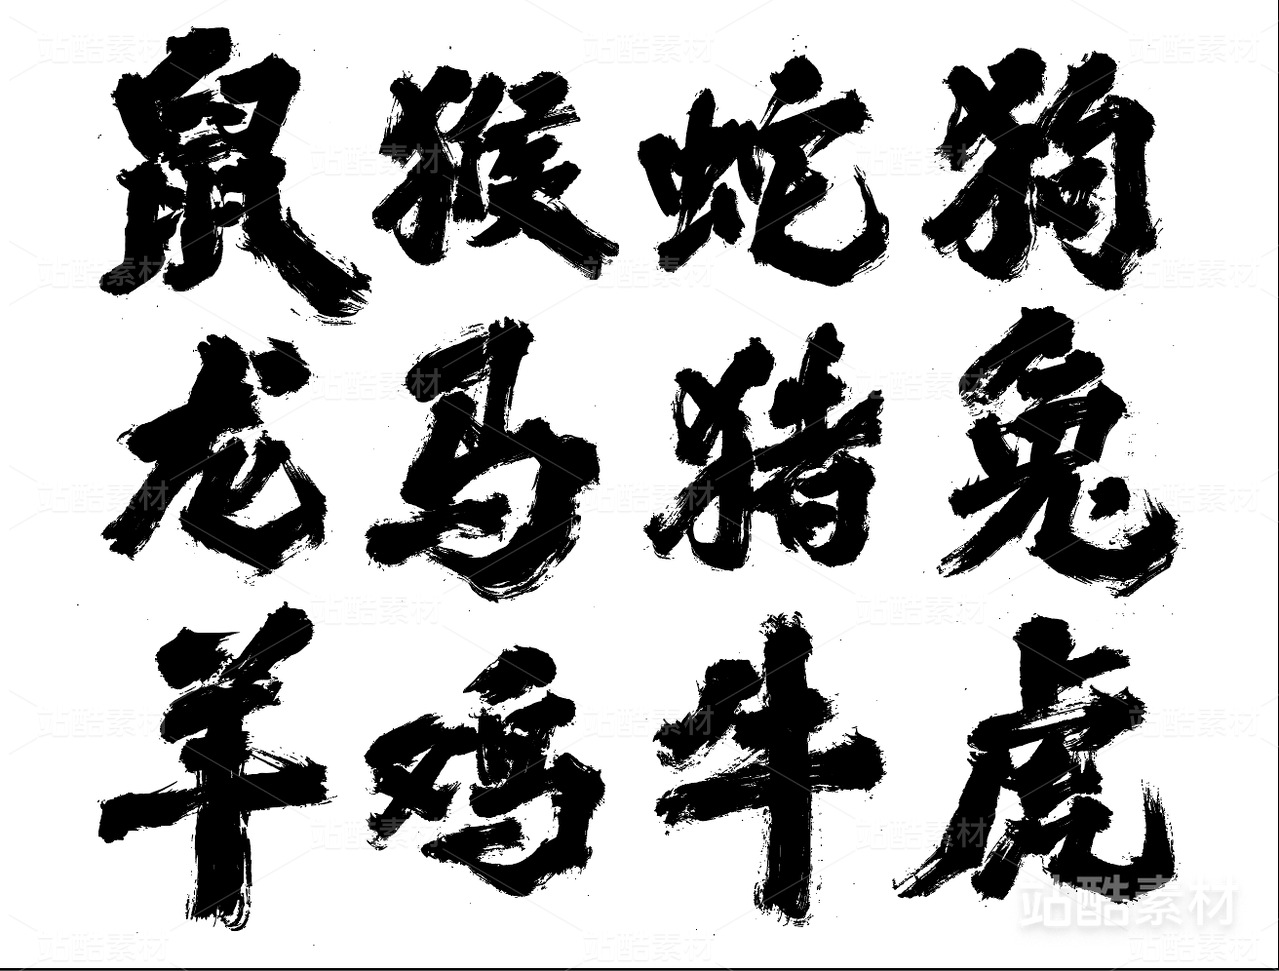 鼠猴蛇狗
龙马猪兔
羊鸡牛虎
站酷素材